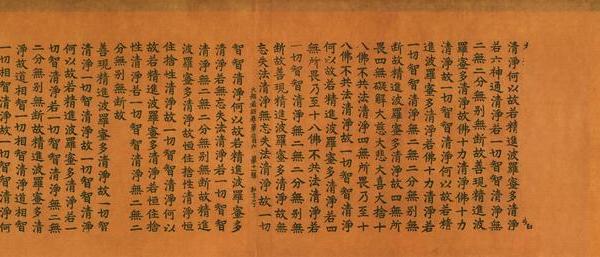 清淨何以故若精進波羅蜜多清淨
若六神通清淨若一切智智清淨無
二無二分無別無斷故善現精進波
羅蜜多清淨故佛十力清淨佛十力
清淨故一切智智清淨何以故若精
進波羅蜜多清淨若佛十力清淨若
一切智智清淨無二無二分無別無
斷故精進波羅蜜多清淨故四無所
畏四無礙解大慈大悲大喜大捨十
八佛不共法清淨四無所畏乃至十
八佛不共法清淨故一切智智清淨
何以故若精進波羅蜜多清淨若四
無所畏乃至十八佛不共法清淨若
一切智智清淨無二無二分無別無
斷故善現精進波羅蜜多清淨故無
忘失法清淨無忘失法清淨故一切
智智清淨何以故若精進波羅蜜多
清淨若無忘失法清淨若一切智智
清淨無二無二分無別無斷故精進
波羅蜜多清淨故恒住捨性清淨恒
住捨性清淨故一切智智清淨何以
故若精進波羅蜜多清淨若恒住捨
性清淨若一切智智清淨無二無二
分無別無斷故
善現精進波羅蜜多清淨故一切智
清淨一切智清淨故一切智智清淨
何以故若精進波羅蜜多清淨若一
切智清淨若一切智智清淨無二無
二分無別無斷故精進波羅蜜多清
淨故道相智一切相智清淨道相智
一切相智清淨故一切智智清淨何